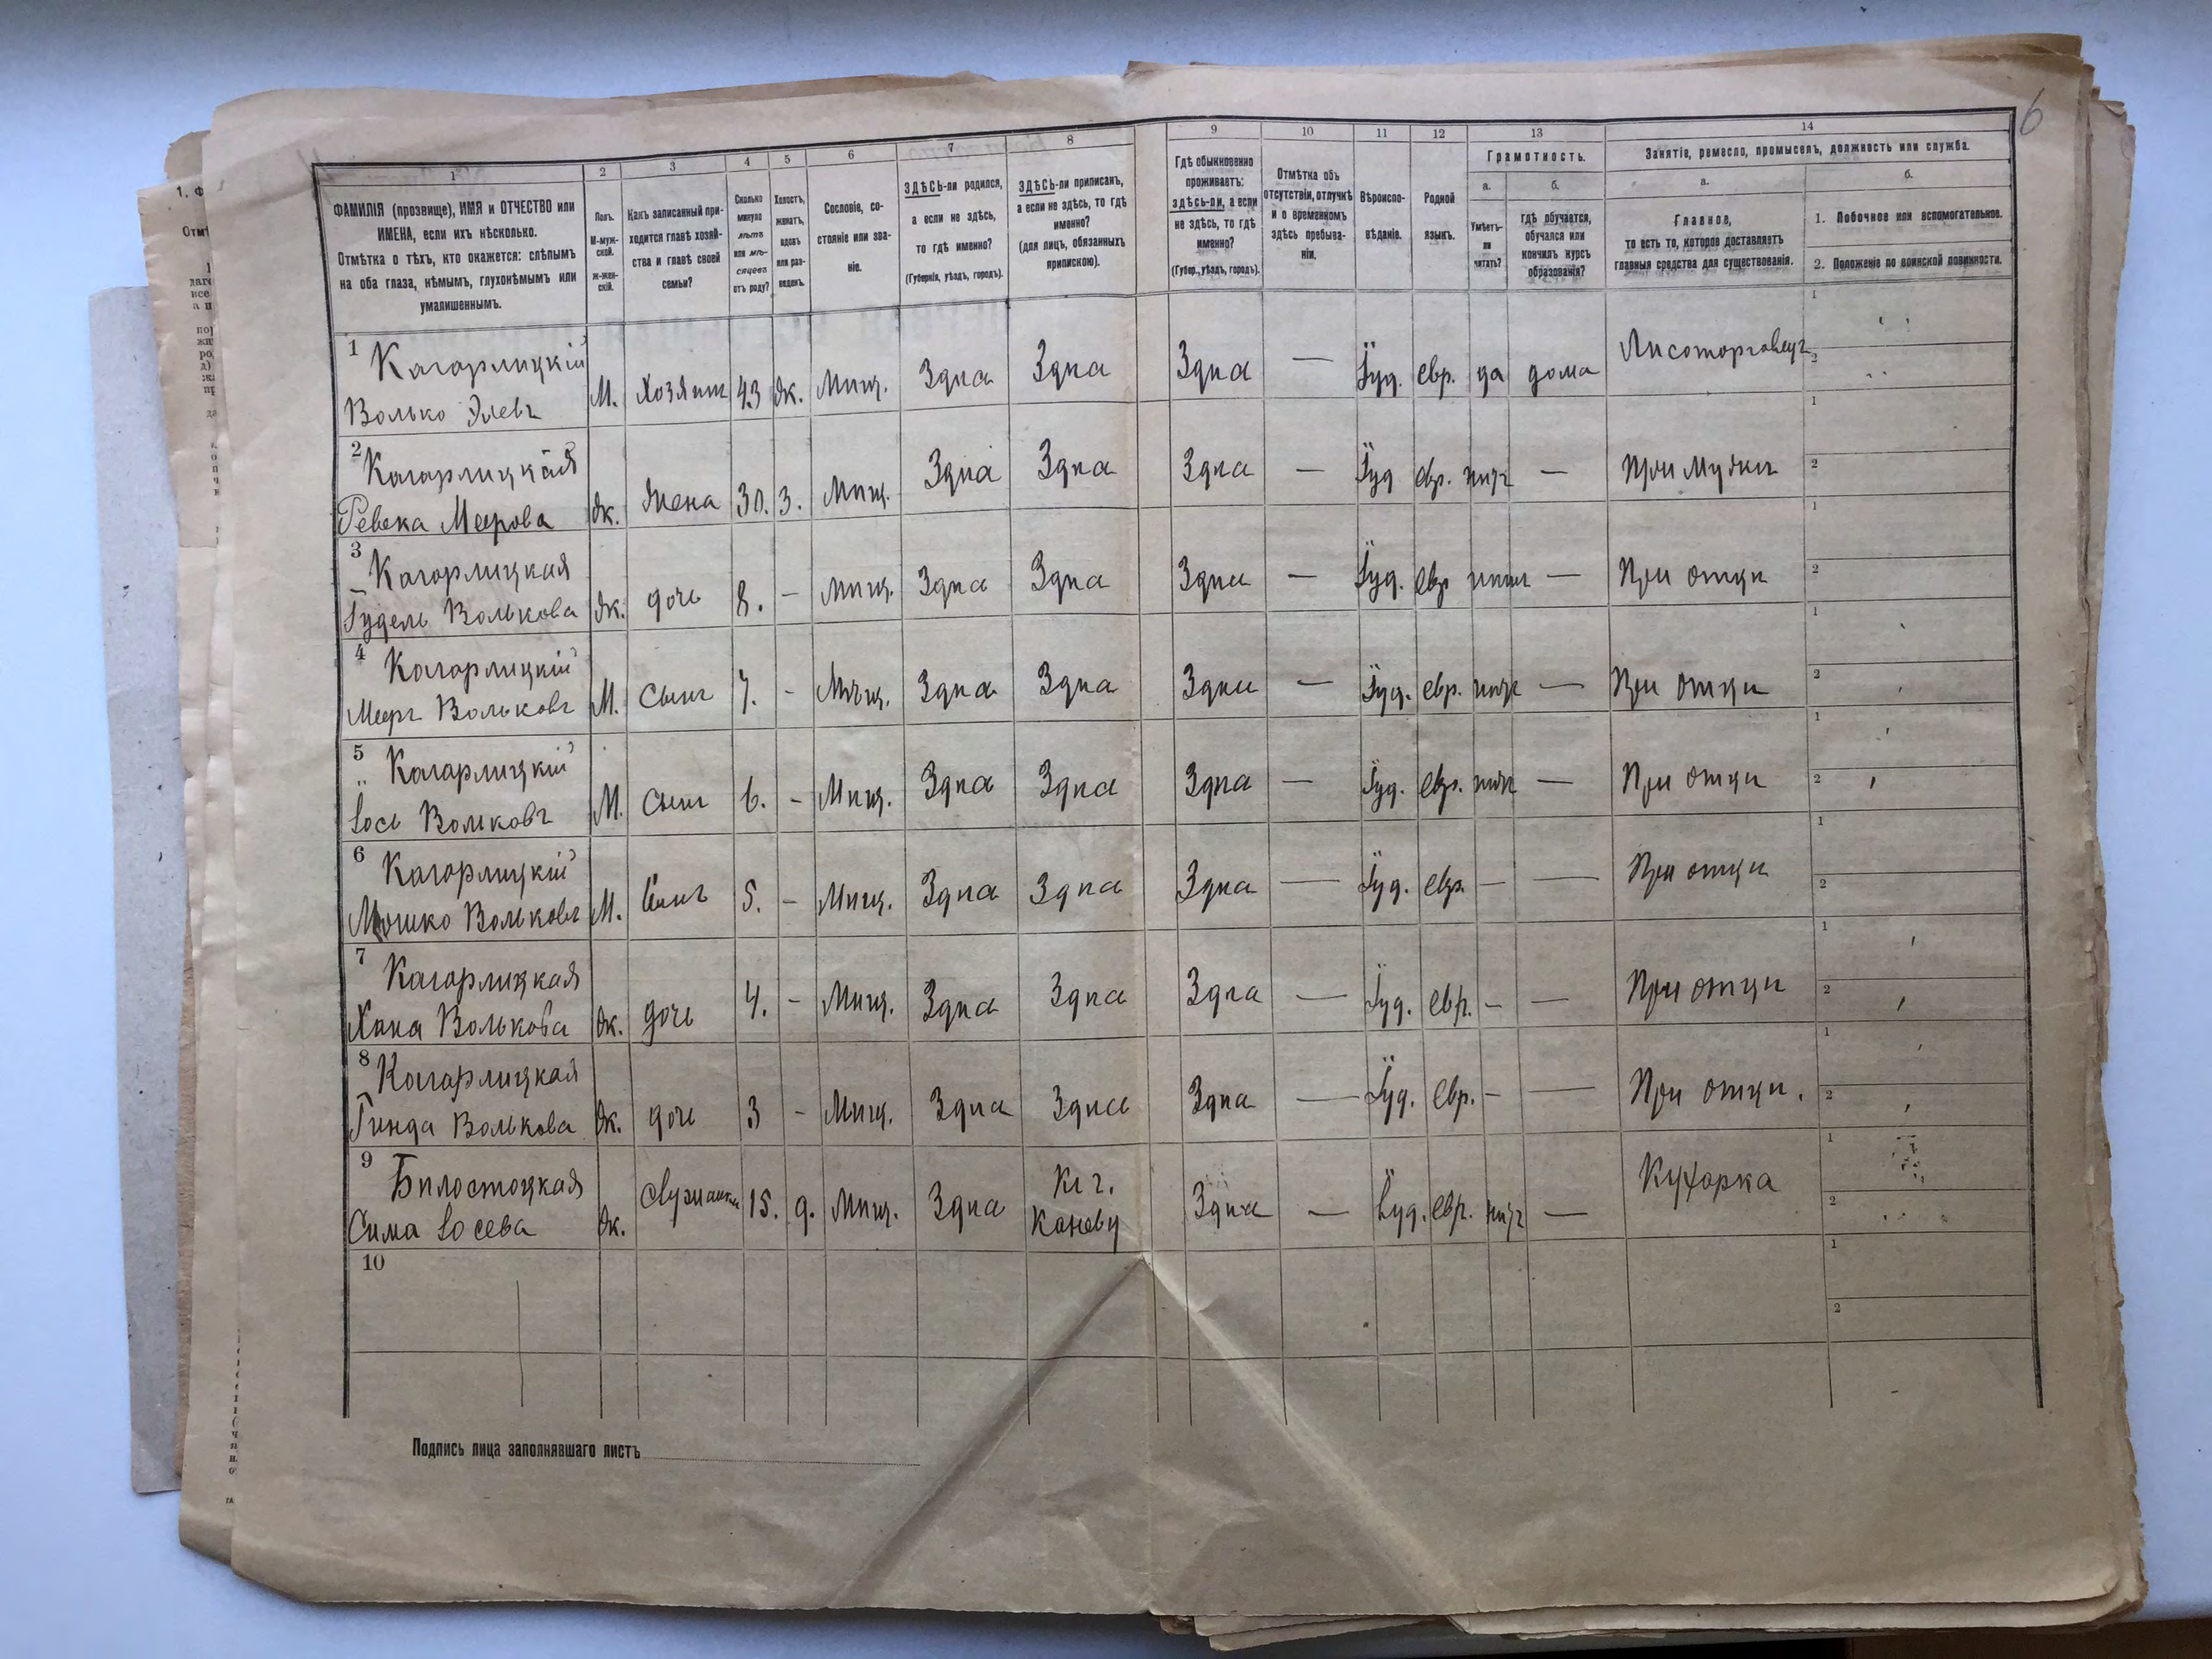 6
1
ФАМИЛІЯ (прозвище), ИМЯ и ОТЧЕСТВО или
ИМЕНА, если ихъ нѣсколько.
Отмѣтка о тѣхъ, кто окажется: слѣпымъ
на оба глаза, нѣмымъ, глухонѣмымъ или
умалишеннымъ.
2
Полъ.
М-муж-
ской.
ж-жен-
скій.
3
Какъ записанный при-
ходится главѣ хозяй-
ства и главѣ своей
семьи?
4
Сколько
минуло
лѣтъ
или мѣ-
сяцевъ
отъ роду?
5
Холостъ,
женатъ,
вдовъ
или раз-
веденъ.
6
Сословіе, со-
стояніе или зва-
ніе.
7
ЗДѢСЬ-ли родился,
а если не здѣсь,
то гдѣ именно?
(Губернія, уѣздъ, городъ).
8
ЗДѢСЬ-ли приписанъ,
а если не здѣсь, то гдѣ
именно?
(для лицъ, обязанныхъ
припискою).
9
Гдѣ обыкновенно
проживаетъ:
здѣсь-ли, а если
не здѣсь, то гдѣ
именно?
(Губер., уѣздъ, городъ).
10
Отмѣтка объ
отсутствіи, отлучкѣ
и о временномъ
здѣсь пребыва-
ніи.
11
Вѣроиспо-
вѣданіе.
12
Родной
языкъ.
13
Грамотность.
а.
Умѣетъ-
ли
читать?
б.
гдѣ обучается,
обучался или
кончилъ курсъ
образованія?
14
Занятіе, ремесло, промыселъ, должность или служба.
а.
Главное,
то есть то, которое доставляетъ
главныя средства для существованія.
б.
1. Побочное или вспомогательное.
2. Положеніе по воинской повинности.
1 Кагарлицкій
Волько Элевъ
М. Хозяинъ 43 ж. Мищ. Здпа Здпа Здпа — Іуд. евр. да дома Лисоторговецъ
1
2
2 Кагарлицкая
Ревека Меерова
ж. жена 30. З. Мищ. Здпа Здпа Здпа — Іуд евр. нитъ — При мужи
1
2
3 Кагарлицкая
Гудель Волькова
ж. дочь 8. - Мищ. Здпа Здпа Здпа — Іуд. евр — При отци
1
2
4 Кагарлицкій
Мееръ Вольковъ
М. Сынъ 7. - Мѣщ. Здпа Здпа Здпа — Іуд. евр. нитъ — При отци
1
2
5 Кагарлицкій
Іось Вольковъ
М. Сынъ 6. - Мищ. Здпа Здпа Здпа — Іуд. евр. нитъ — При отци
1
2
6 Кагарлицкій
Мошко Вольковъ
М. Сынъ 5. - Мищ. Здпа Здпа Здпа — Іуд. евр. - — При отци
1
2
7 Кагарлицкая
Хана Волькова
ж. дочь 4. - Мищ. Здпа Здпа Здпа — Іуд. евр. - — При отци
1
2
8 Кагарлицкая
Гинда Волькова
ж. дочь 3 - Мищ. Здпа Здпа Здпа — Іуд. евр. - — При отци.
1
2
9 Билостоцкая
Сима Іосева
ж. 15. д. Мищ. Здпа Кг г.
Каневу
Здпа — Іуд. евр. нитъ — Кухарка
1
2
10
1
2
Подпись лица заполнявшаго листъ